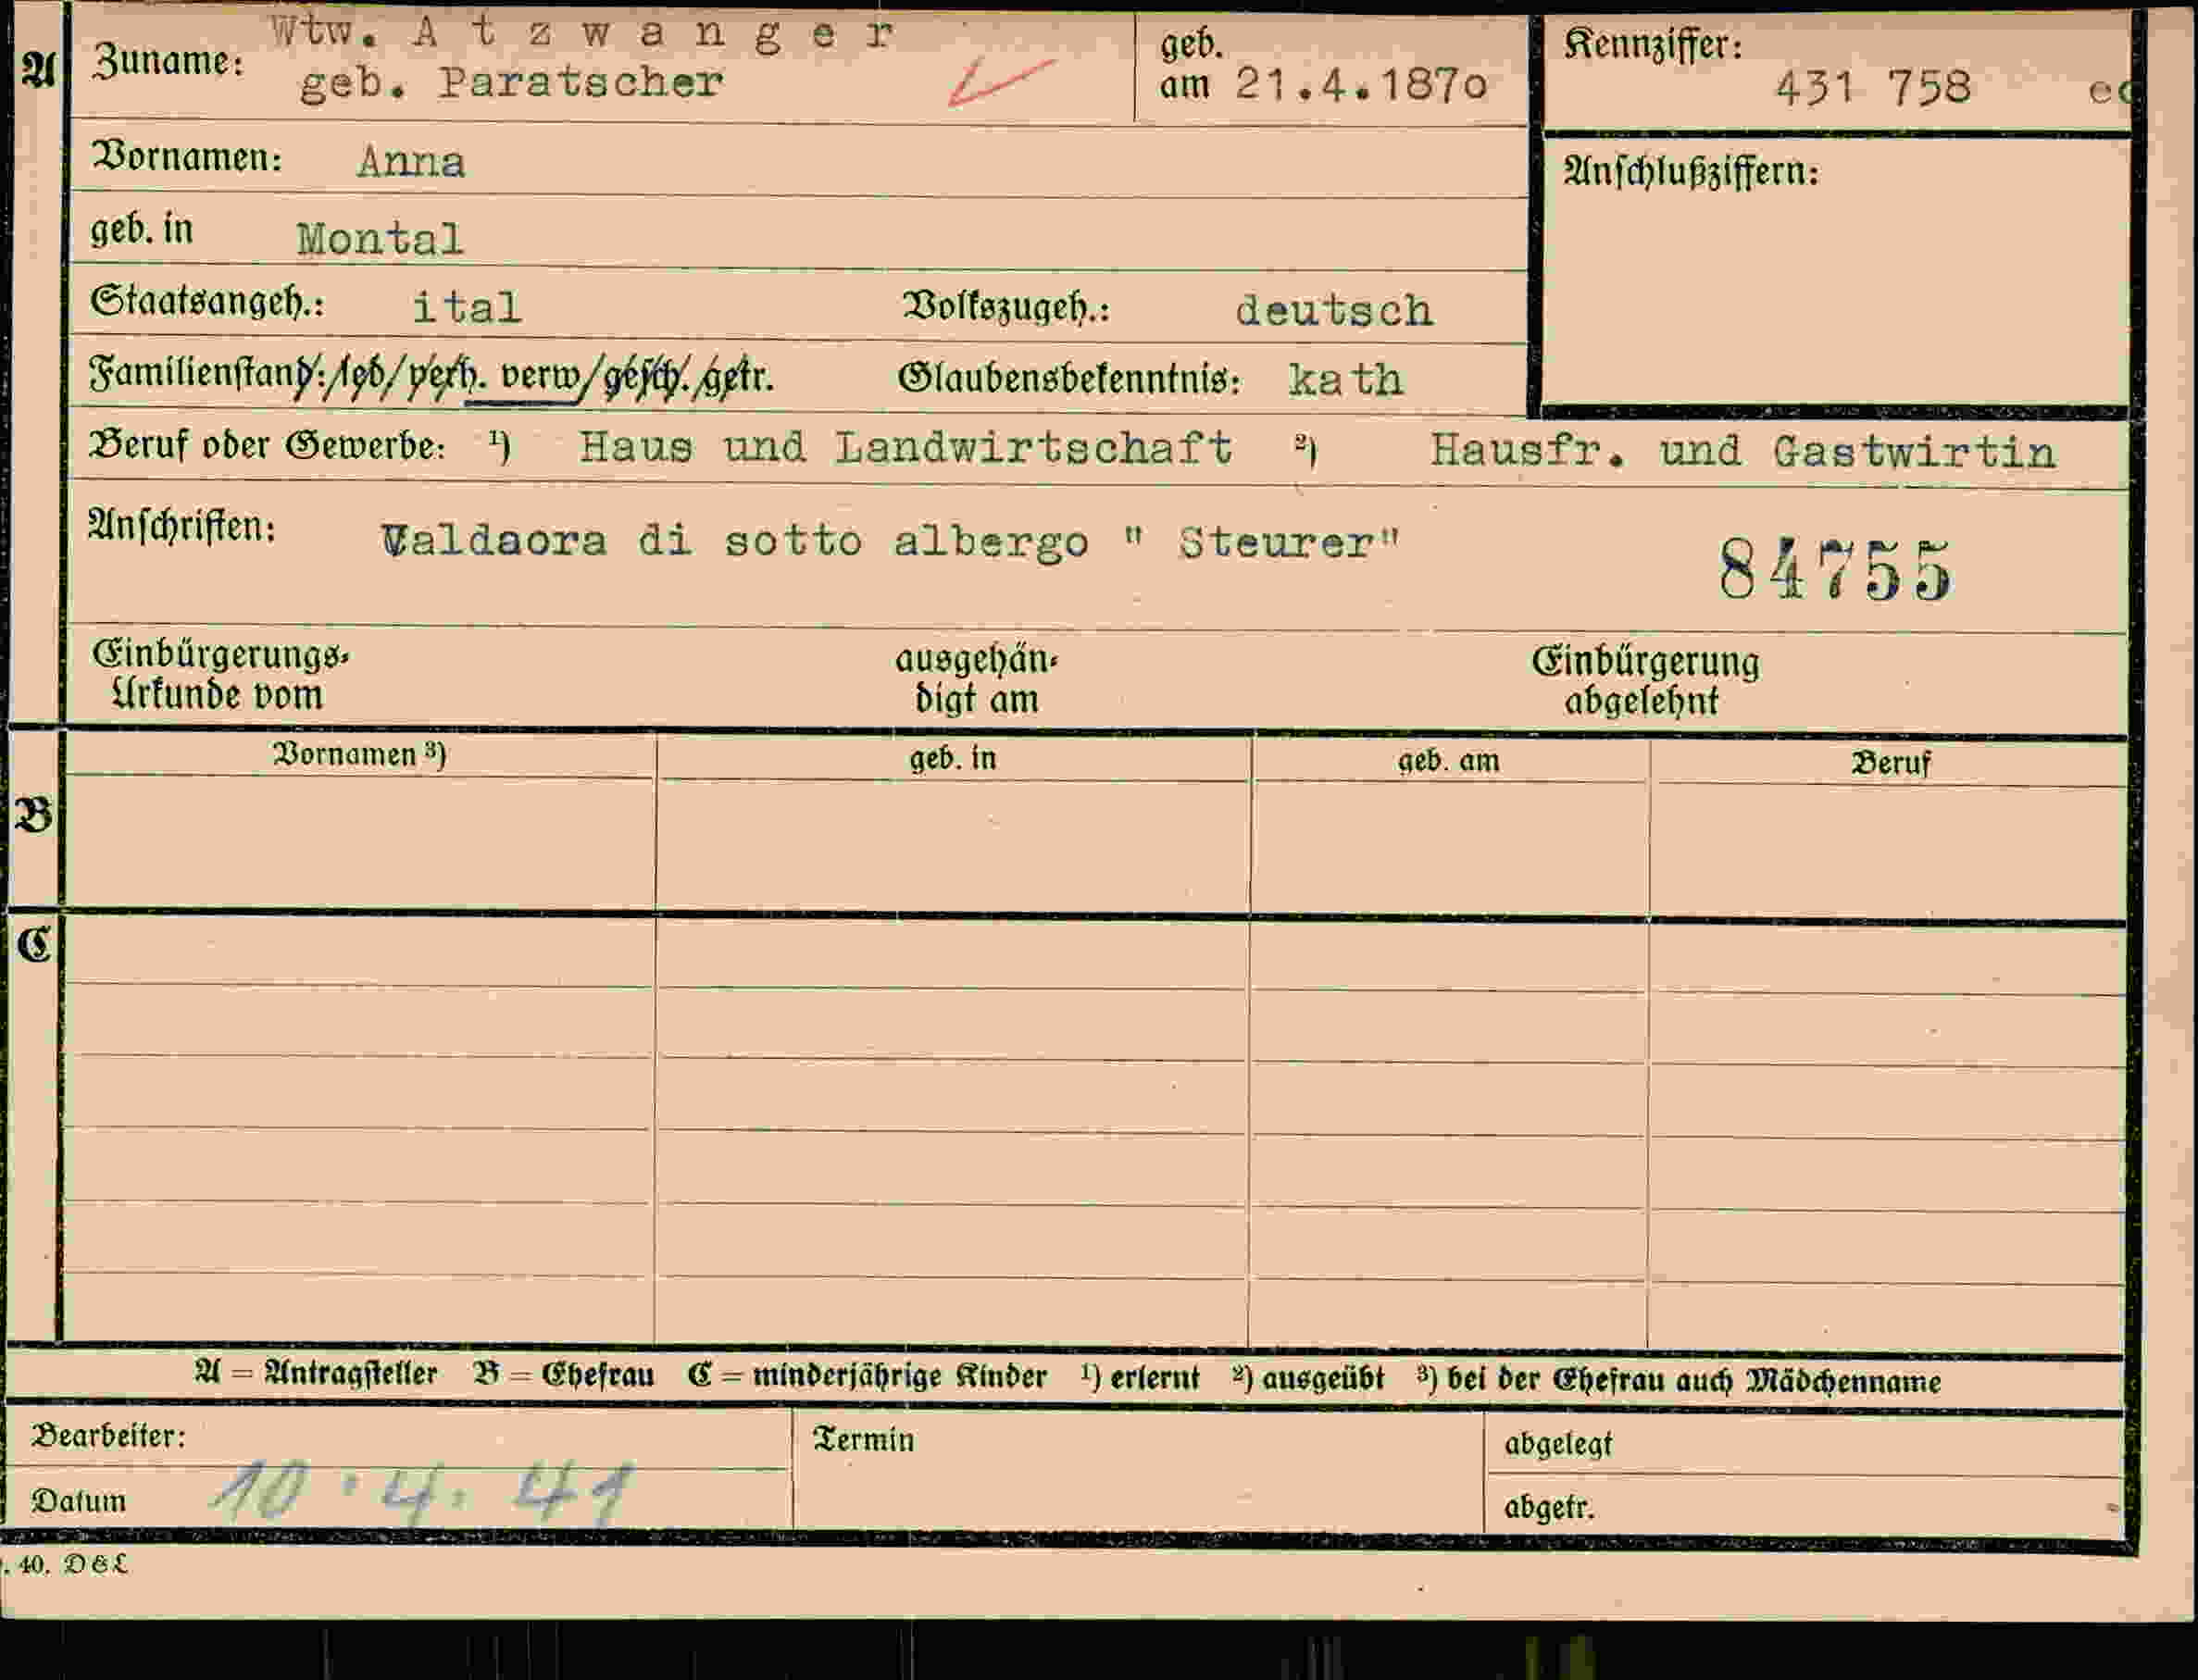 Wtw. A t z w a n g e r
A Zuname: geb. Paratscher geb. am 21.4.187o Kennziffer: 431 758
Vornamen: Anna Anschlußziffern:
geb. in Montal
Staatsangeh.: ital Volkszugeh.: deutsch
Familienstand: led/verh. verw/gesch./getr. Glaubensbekenntnis: kath
Beruf oder Gewerbe: ¹) Haus und Landwirtschaft ²) Hausfr. und Gastwirtin
Anschriften: Valdaora di sotto albergo " Steurer" 84755
Einbürgerungs- ausgehän- Einbürgerung
Urkunde vom digt am abgelehnt
Vornamen ³) geb. in geb. am Beruf
B
C
A = Antragsteller B = Ehefrau C = minderjährige Kinder ¹) erlernt ²) ausgeübt ³) bei der Ehefrau auch Mädchenname
Bearbeiter: Termin abgelegt
Datum 10.4.41 abgetr.
. 40. D&L